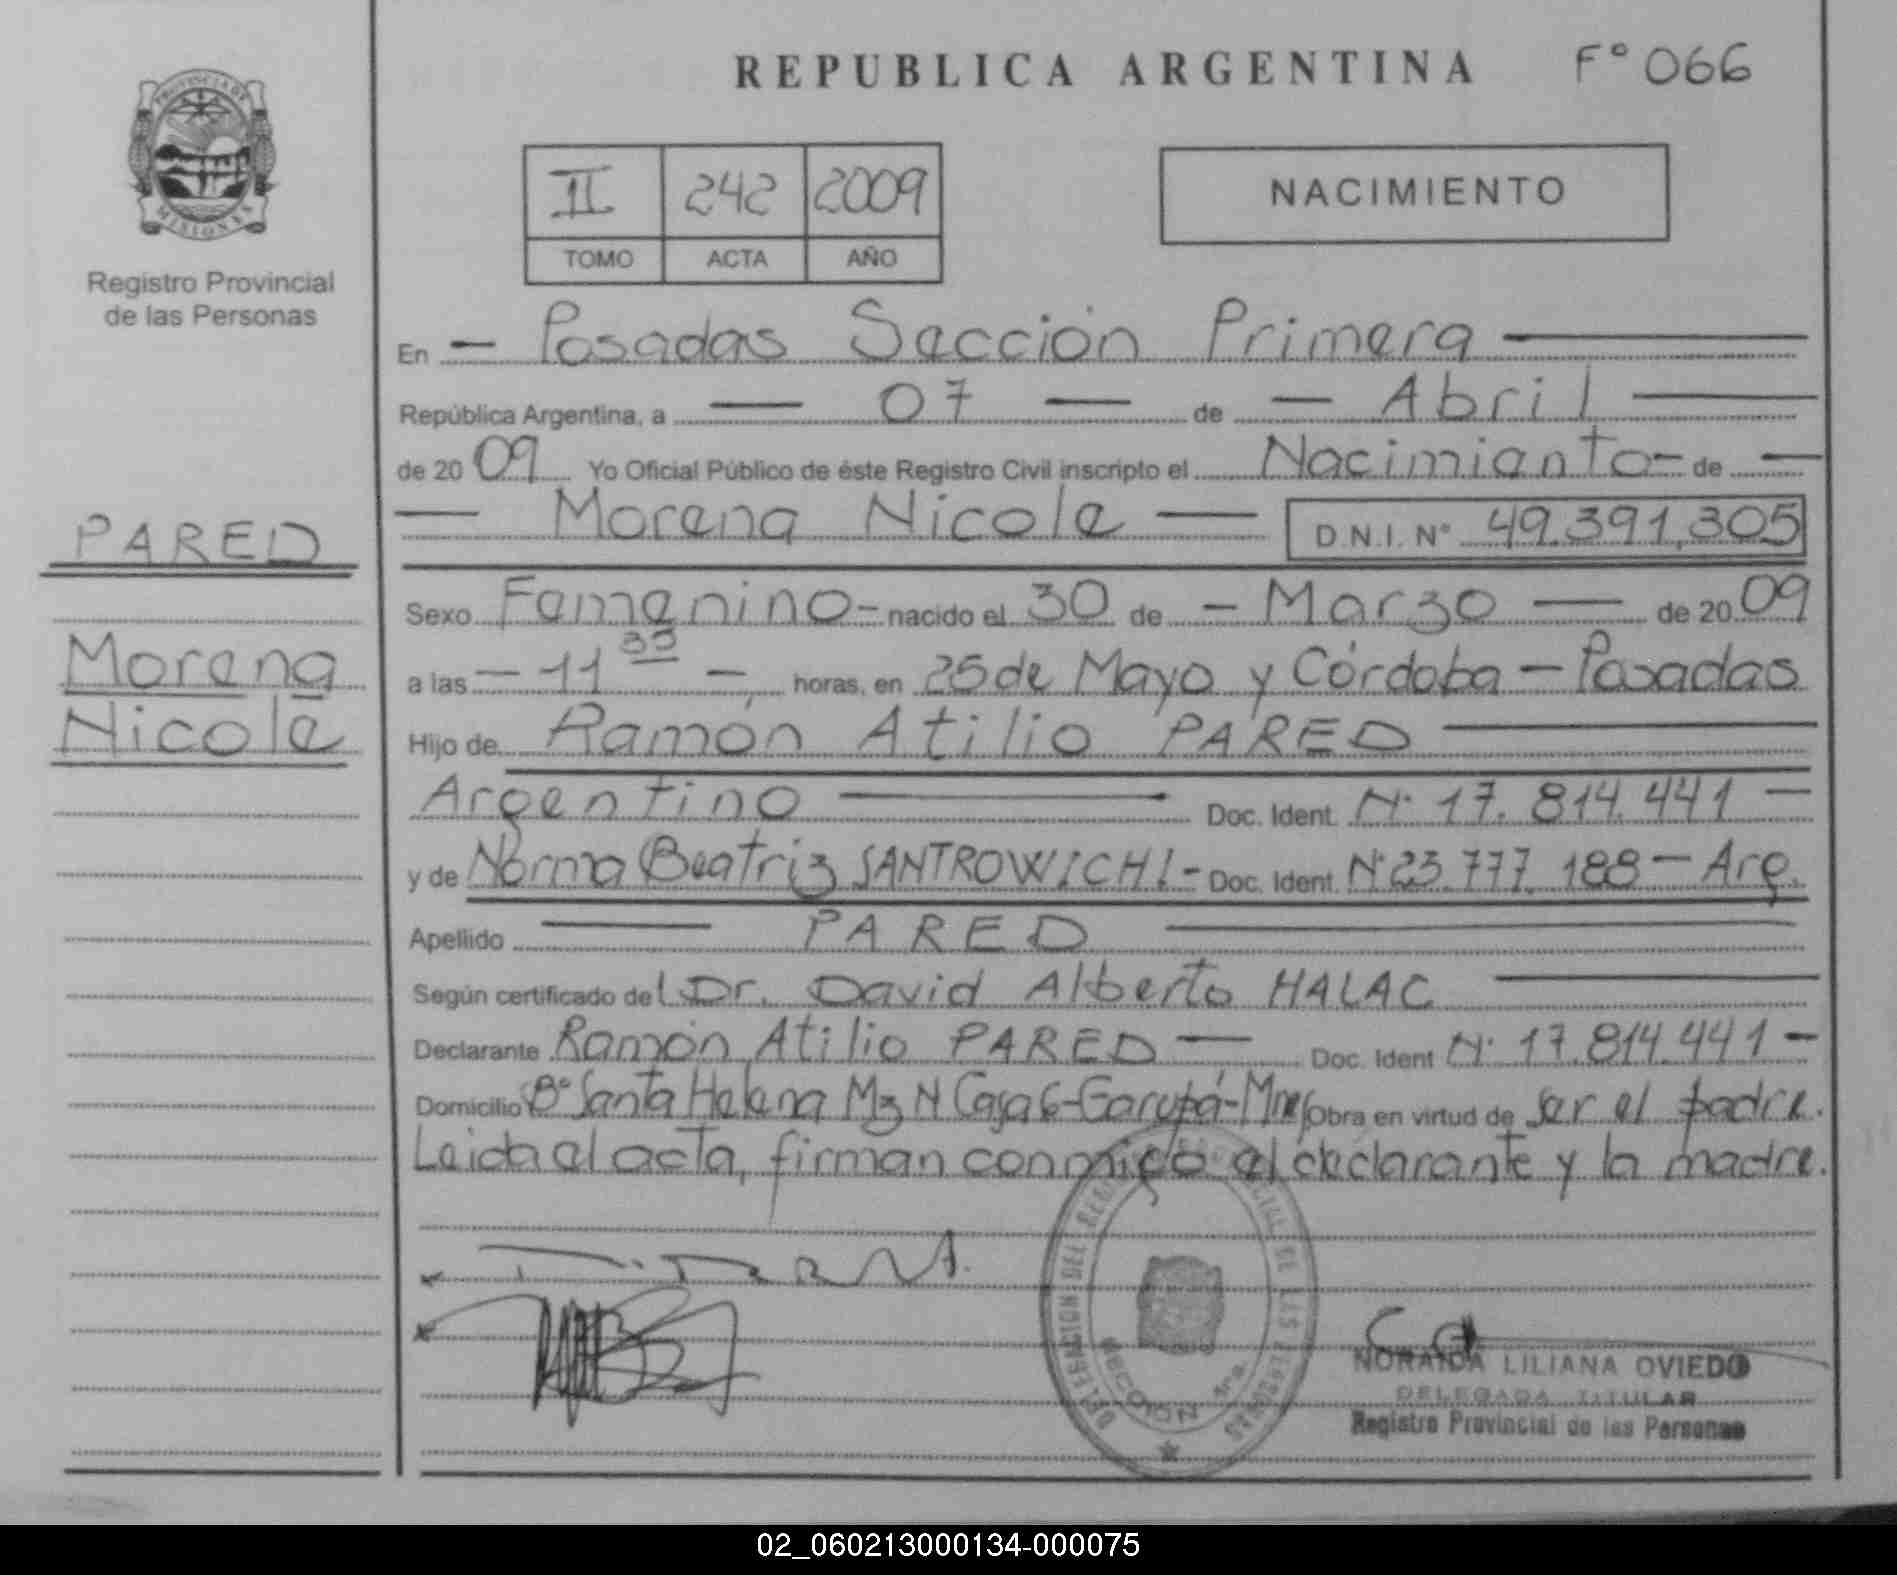 REPUBLICA ARGENTINA F° 066
PROVINCIA DE
MISIONES
Registro Provincial
de las Personas
II 242 2009
TOMO ACTA AÑO
NACIMIENTO
En — Posadas Sección Primera —
República Argentina, a — 07 — de — Abril —
de 20 09 Yo Oficial Público de éste Registro Civil inscripto el Nacimiento - de —
— Morena Nicole — D.N.I. N° 49.391.305
PARED
Morena
Nicole
Sexo Femenino - nacido el 30 de — Marzo — de 20 09
a las — 11 35 —, horas, en 25 de Mayo y Córdoba — Posadas
Hijo de Ramón Atilio PARED —
Argentino — Doc. Ident. N° 17.814.441 —
y de Norma Beatriz SANTROWICHI - Doc. Ident. N° 23.777.188 — Arg.
Apellido — PARED —
Según certificado del Dr. David Alberto HALAC —
Declarante Ramón Atilio PARED — Doc. Ident N° 17.814.441 —
Domicilio B° Santa Helena Mz N Casa 6 - Garupá - Mnes Obra en virtud de ser el padre.
Leida el acta, firman conmigo el declarante y la madre.
DELEGACION DEL REGISTRO PROVINCIAL DE LAS PERSONAS
SECCION 1ra.
NORAIDA LILIANA OVIEDO
DELEGADA TITULAR
Registro Provincial de las Personas
02_060213000134-000075